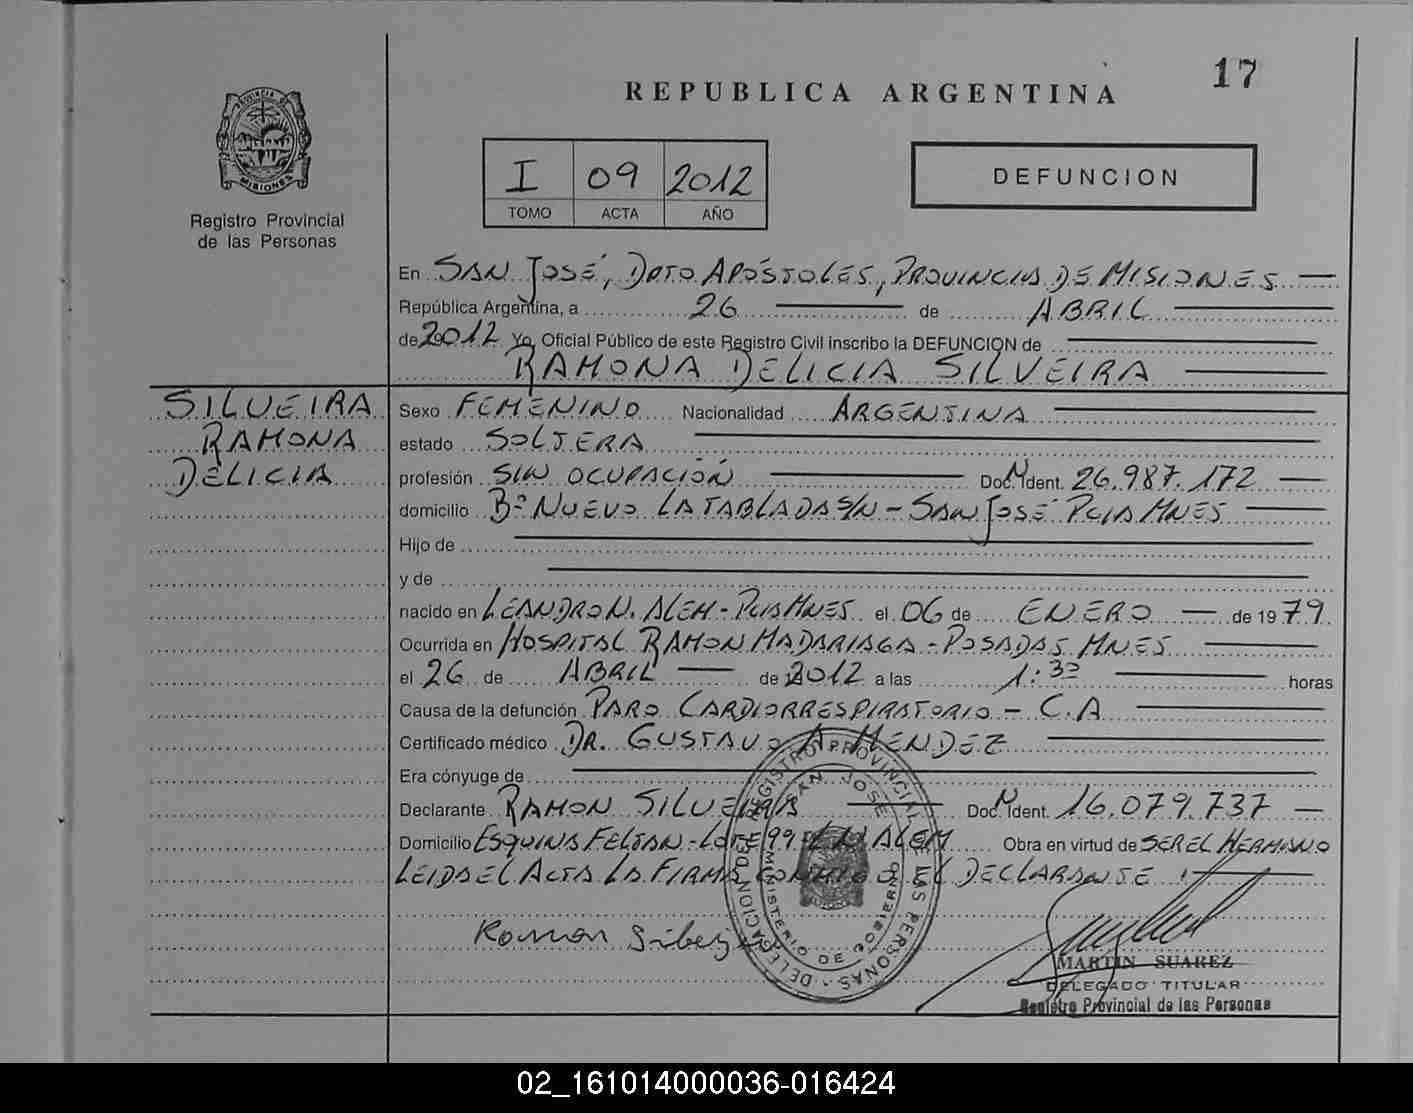 17
REPUBLICA ARGENTINA
PROVINCIA DE
MISIONES
Registro Provincial
de las Personas
I 09 2012
TOMO ACTA AÑO
DEFUNCION
En SAN JOSÉ, DPTO APÓSTOLES, PROVINCIA DE MISIONES
República Argentina, a 26 de ABRIL
de 2012 Yo, Oficial Público de este Registro Civil inscribo la DEFUNCION de
RAMONA DELICIA SILVEIRA
SILVEIRA
RAMONA
DELICIA
Sexo FEMENINO Nacionalidad ARGENTINA
estado SOLTERA
profesión SIN OCUPACIÓN Doc. N Ident. 26.987.172
domicilio Bº NUEVO LA TABLADA S/N - SAN JOSÉ PCIA MNES
Hijo de
y de
nacido en LEANDRO N. ALEM - PCIA MNES el 06 de ENERO de 1979
Ocurrida en HOSPITAL RAMON MADARIAGA - POSADAS MNES
el 26 de ABRIL de 2012 a las 1:30 horas
Causa de la defunción PARO CARDIORRESPIRATORIO - C.A
Certificado médico DR. GUSTAVO A MENDEZ
Era cónyuge de
Declarante RAMON SILVEIRA Doc. N Ident. 16.079.737
Domicilio ESQUINA FELTAN - LOTE 99 - L N ALEM Obra en virtud de SER EL HERMANO
LEIDA EL ACTA LA FIRMA CONMIGO EL DECLARANTE
Ramon
DELEGACION DEL REGISTRO PROVINCIAL DE LAS PERSONAS
SAN JOSE
MINISTERIO DE GOBIERNO
MARTIN SUAREZ
DELEGADO TITULAR
Registro Provincial de las Personas
02_161014000036-016424